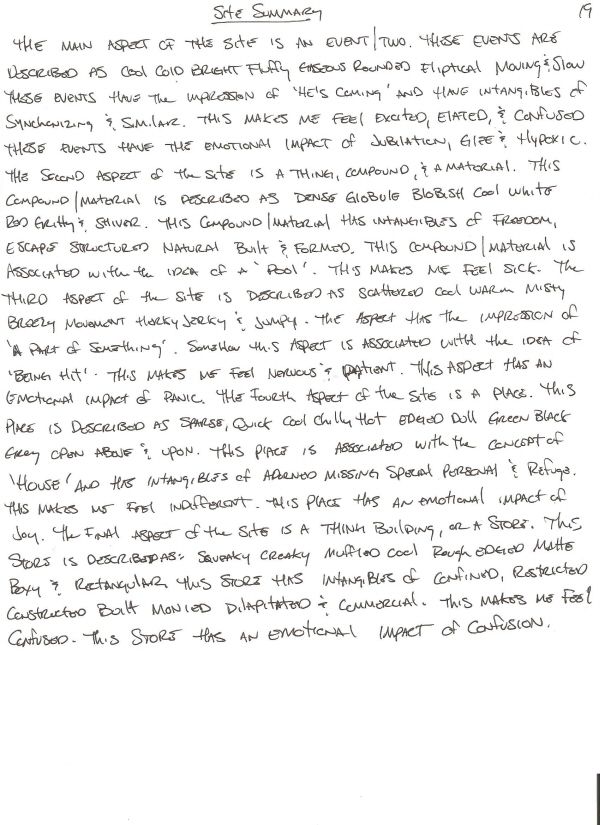 Site Summary
19
The main aspect of the site is an event/two. These events are
described as cool cold bright fluffy gaseous rounded eliptical moving & slow
These events have the impression of 'He's coming' and have intangibles of
synchonizing & similar. This makes me feel excited, elated, & confused
These events have the emotional impact of jubilation, glee & hypoxic.
The second aspect of the site is a thing, compound, & a material. This
compound/material is described as dense globule blobish cool white
red gritty & shiver. This compound/material has intangibles of freedom,
escape structured natural built & formed. This compound/material is
associated with the idea of a 'pool'. This makes me feel sick. The
third aspect of the site is described as scattered cool warm misty
breezy movement herky jerky & jumpy. The aspect has the impression of
'a part of something'. Somehow this aspect is associated with the idea of
'being hit'. This makes me feel nervous & patient. This aspect has an
emotional impact of panic. The fourth aspect of the site is a place. This
place is described as sparse, quick cool chilly hot edged dull green black
grey open above & upon. This place is associated with the concept of
'house' and has intangibles of adorned missing special personal & refuge.
This makes me feel indifferent. This place has an emotional impact of
joy. The final aspect of the site is a thing building, or a store. This
store is described as: squeaky creaky muffled cool rough edged matte
boxy & rectangular this store has intangibles of confined, restricted
constructed built monied dilapitated & commercial. This makes me feel
confused. This store has an emotional impact of confusion.